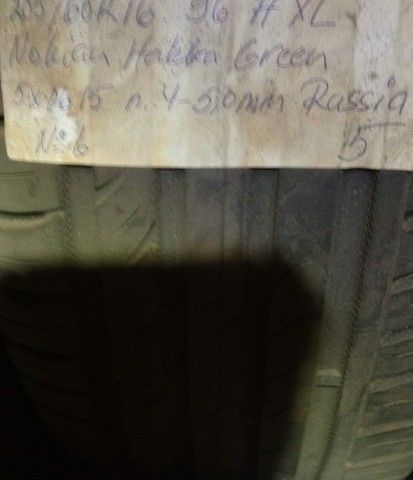 205/60R16 96 H XL
Nokian Hakka Green
n. 4-5,0mm Russia
№6 5